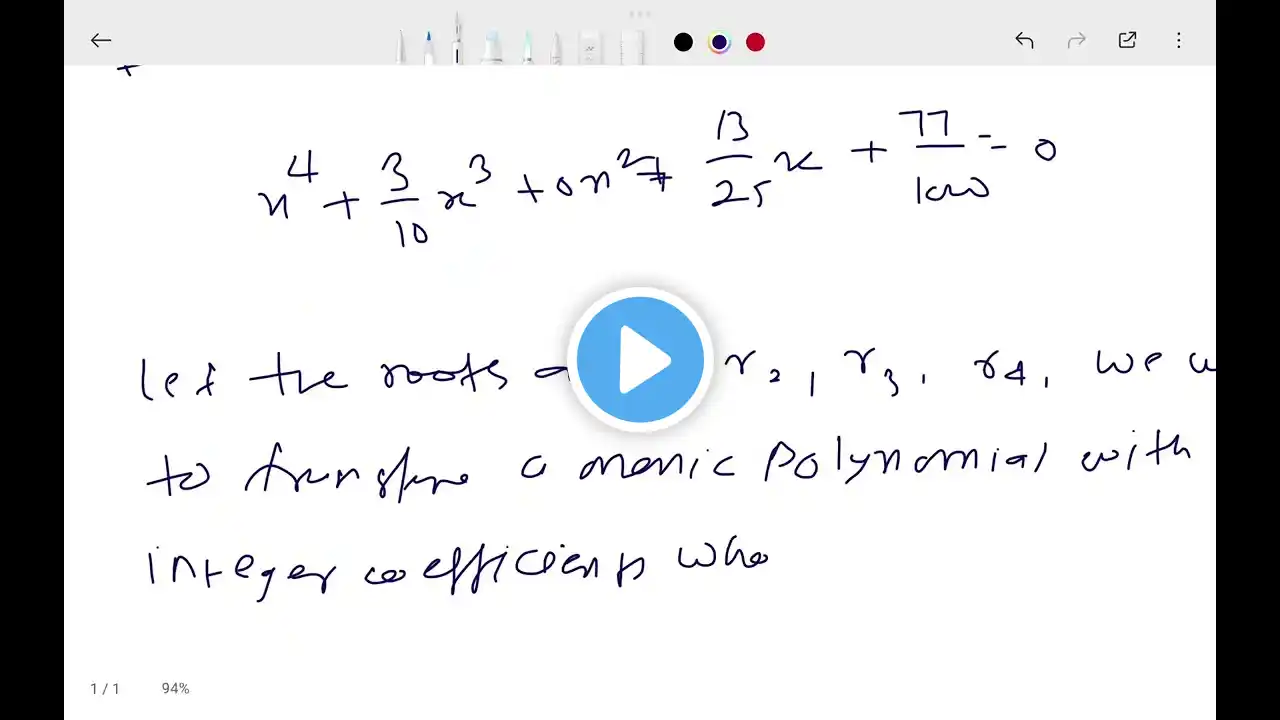 x⁴ + 3/10 x³ + 0x² + 13/25 x + 77/1000 = 0
let the roots r₂, r₃, r₄, we
to a monic polynomial with
integer coefficients
1 / 1 94%